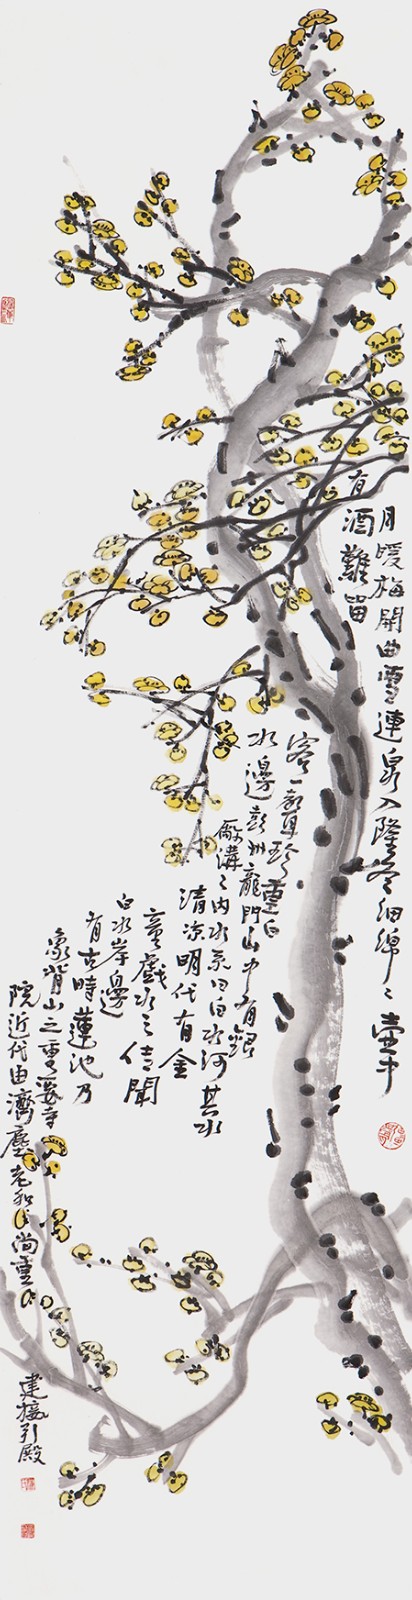 月暖梅開曲雪連泉入隆冬細綿〻壺中
有酒難留
客一聲珍重白
水邊彭州龍門山中有銀
廠溝〻内水系曰白水河其水
清凉明代有金
童戲水之佳聞
白水岸邊
有古時蓮池乃
象背山之重要寺
院近代由濟塵老和尚重
建接引殿